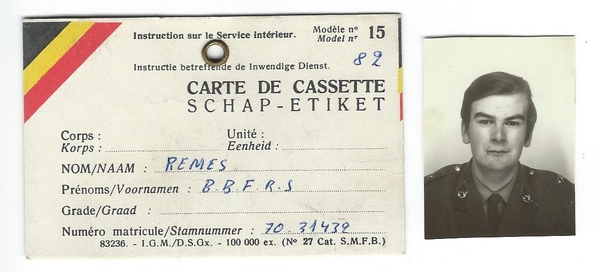 Instruction sur le Service intérieur.
Modèle nº 15
Model nr
Instructie betreffende de Inwendige Dienst.
82
CARTE DE CASSETTE
SCHAP-ETIKET
Corps : Unité :
Korps : Eenheid :
NOM/NAAM : REMES
Prénoms/Voornamen : B.B.F.R.S
Grade/Graad :
Numéro matricule/Stamnummer : 70.31439
83236. - I.G.M./D.S.Gx. - 100 000 ex. (Nº 27 Cat. S.M.F.B.)